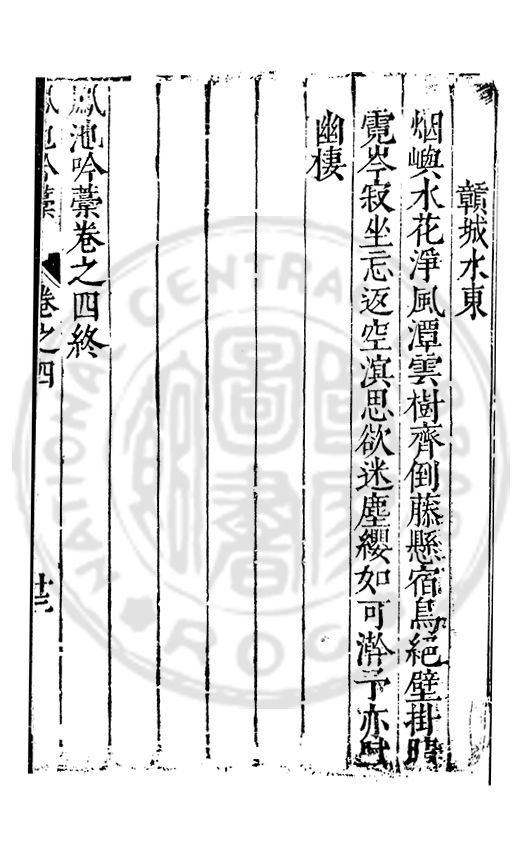 贛城水東
烟嶼水花淨風潭雲樹齊倒藤懸宿鳥絕壁掛晴
霓岑寂坐忘返空滇思欲迷塵纓如可澣予亦賦
幽棲
鳳池吟藁卷之四終
鳳池吟藁 卷之四
NATIONAL CENTRAL